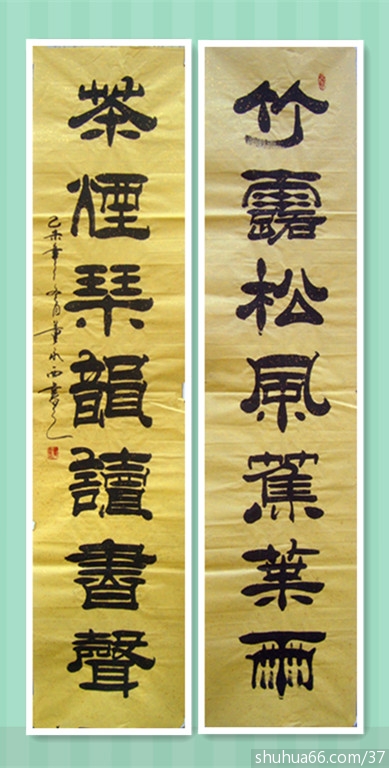 竹露松風蕉葉雨
茶煙琴韻讀書聲
shuhua66.com/37